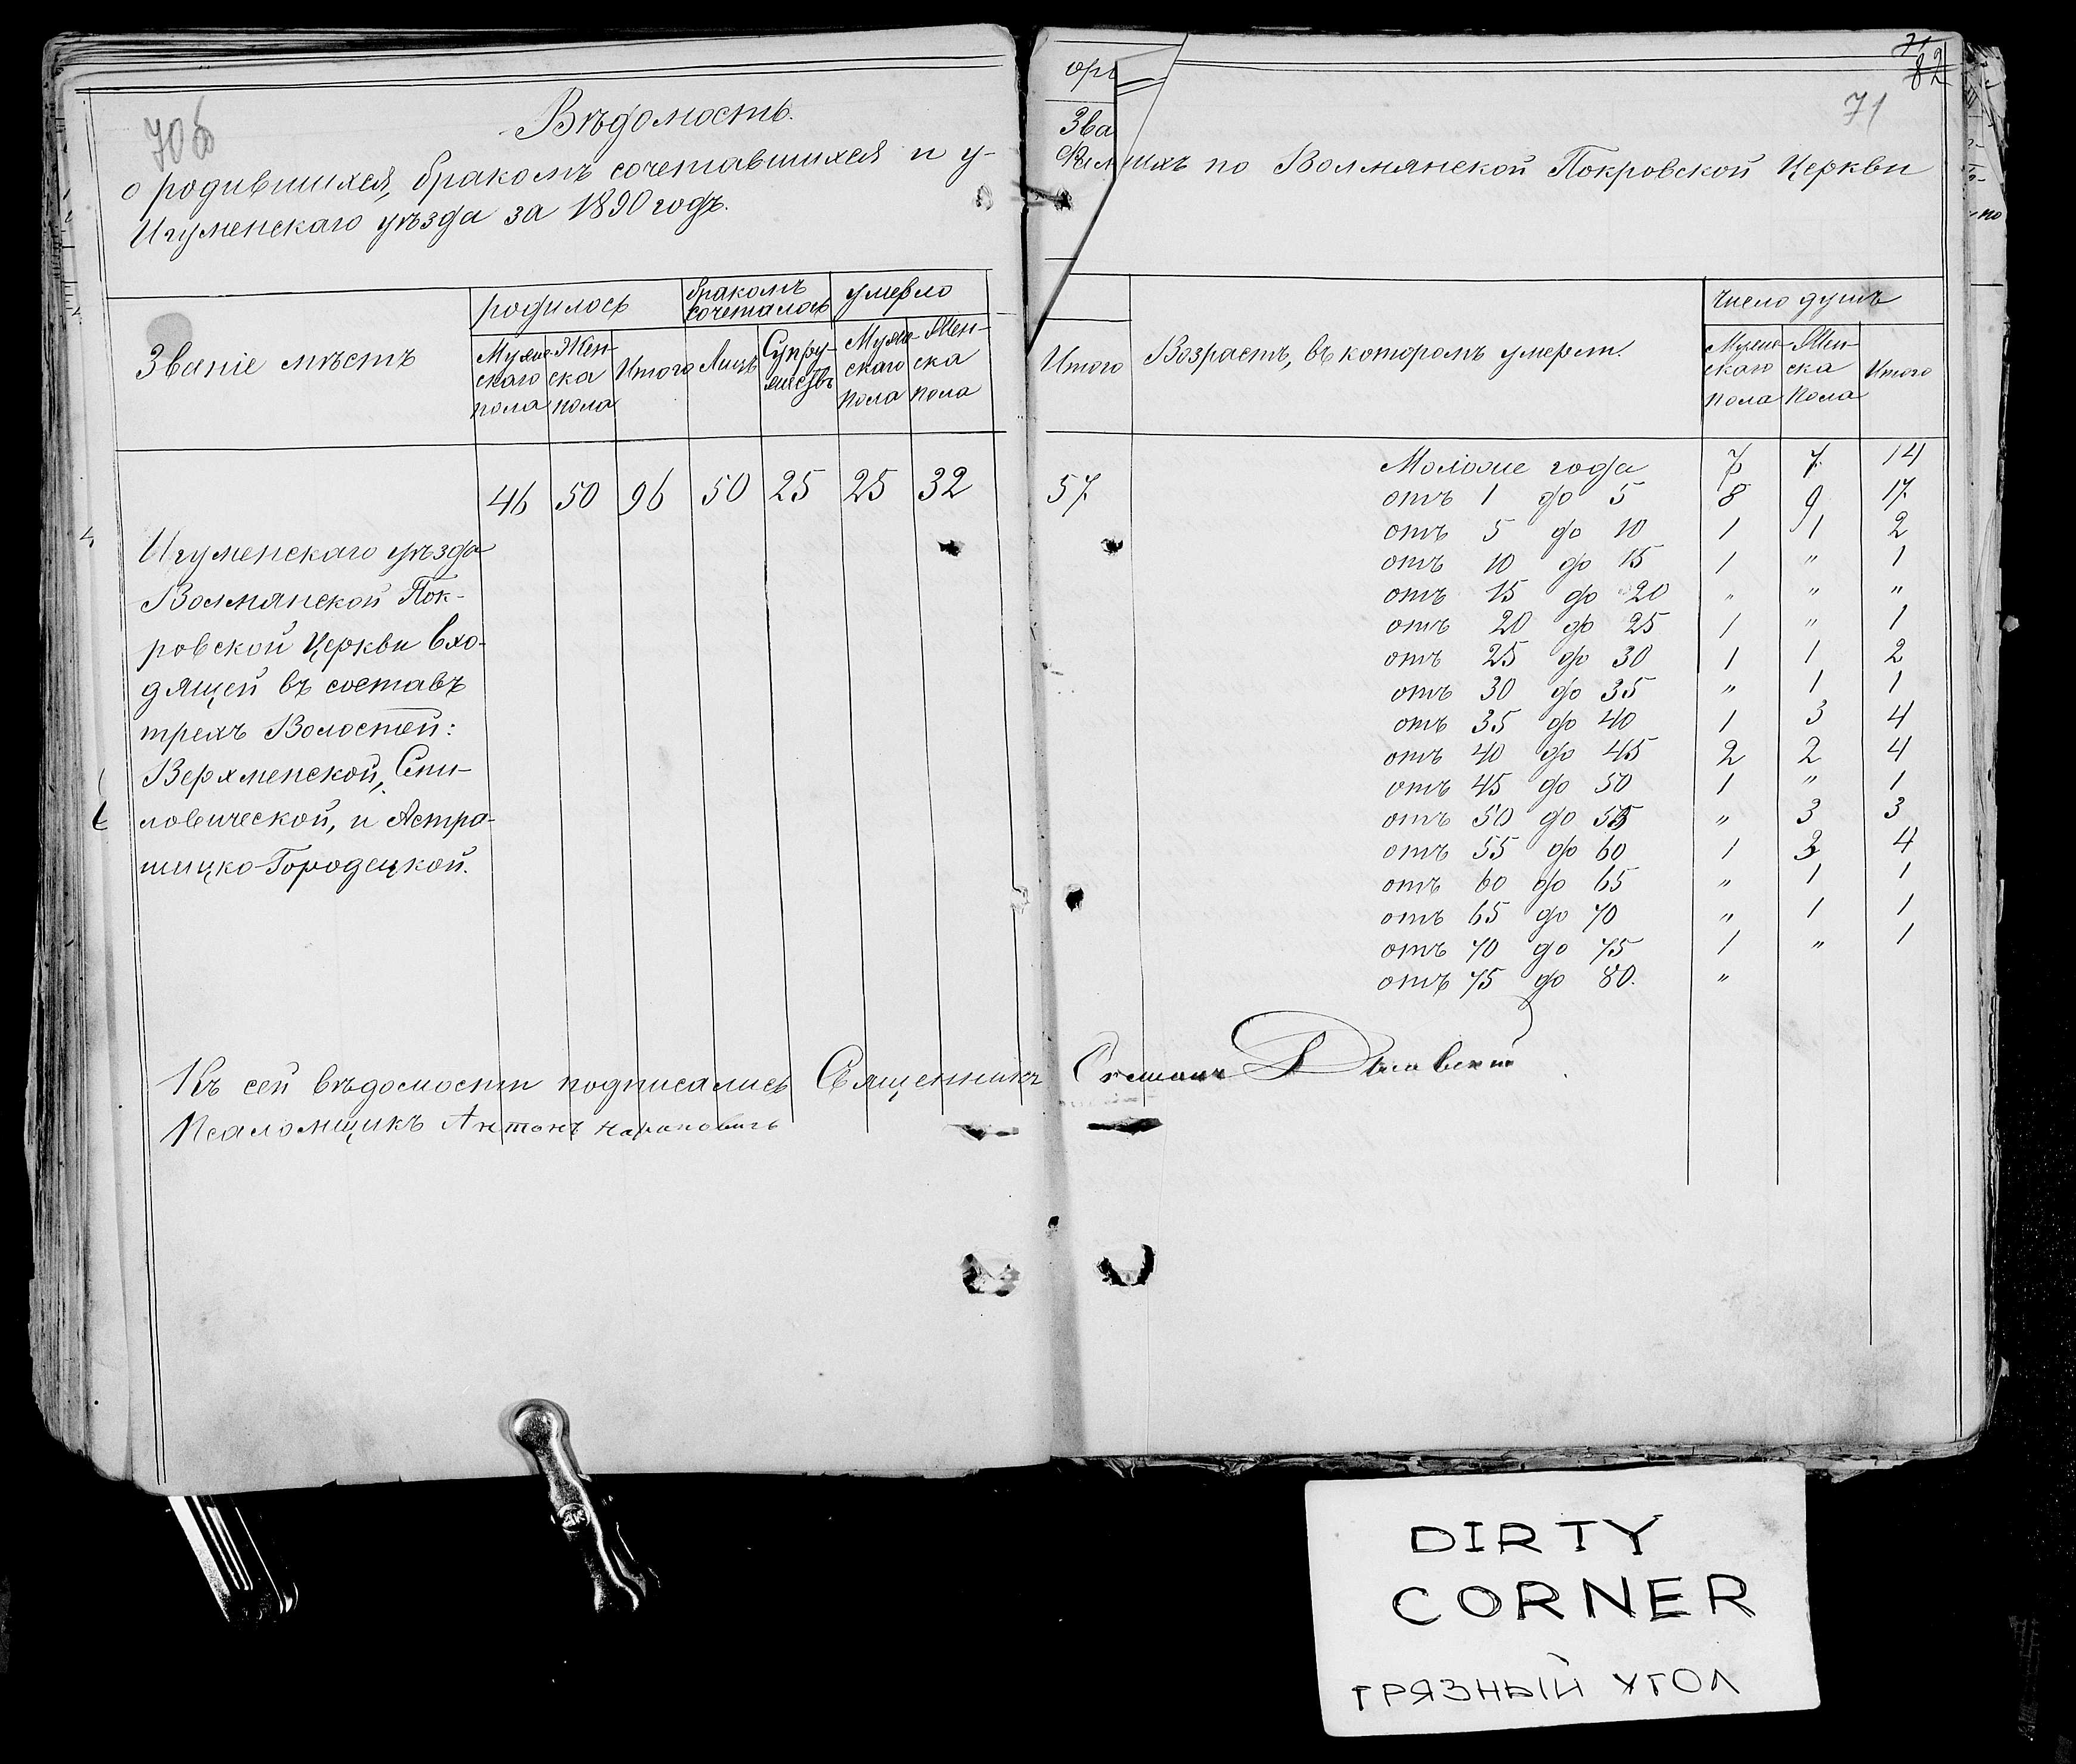 70б
Вѣдомость.
о родившихся, бракомъ сочетавшихся и у-
Игуменскаго уѣзда за 1890 годъ.
Званіе мѣстъ
родилось
бракомъ сочеталось
умерло
Мужескаго пола
Женска пола
Итого
Лицъ
Супружествъ
Мужескаго пола
Женска пола
46 50 96 50 25 25 32
Игуменскаго уѣзда
Волмянской Пок-
ровской Церкви вхо-
дящей въ составъ
трехъ Волостей:
Верхменской, Сми-
ловической, и Астро-
шицко-Городецкой.
Къ сей вѣдомости подписались Священникъ
Псаломщикъ Антонъ
71
82
71
Зва
шихъ по Волмянской Покровской Церкви
Итого
Возрастъ, въ которомъ умерли.
число душъ
Мужескаго пола
Женска пола
Итого
57
Моложе года 7 7 14
отъ 1 до 5 8 9 17
отъ 5 до 10 1 1 2
отъ 10 до 15 1 " 1
отъ 15 до 20 " " "
отъ 20 до 25 1 " 1
отъ 25 до 30 1 1 2
отъ 30 до 35 " 1 1
отъ 35 до 40 1 3 4
отъ 40 до 45 2 2 4
отъ 45 до 50 1 " 1
отъ 50 до 55 " 3 3
отъ 55 до 60 1 3 4
отъ 60 до 65 " 1 1
отъ 65 до 70 " 1 1
отъ 70 до 75 1 " 1
отъ 75 до 80. "
DIRTY
CORNER
ГРЯЗНЫЙ УГОЛ